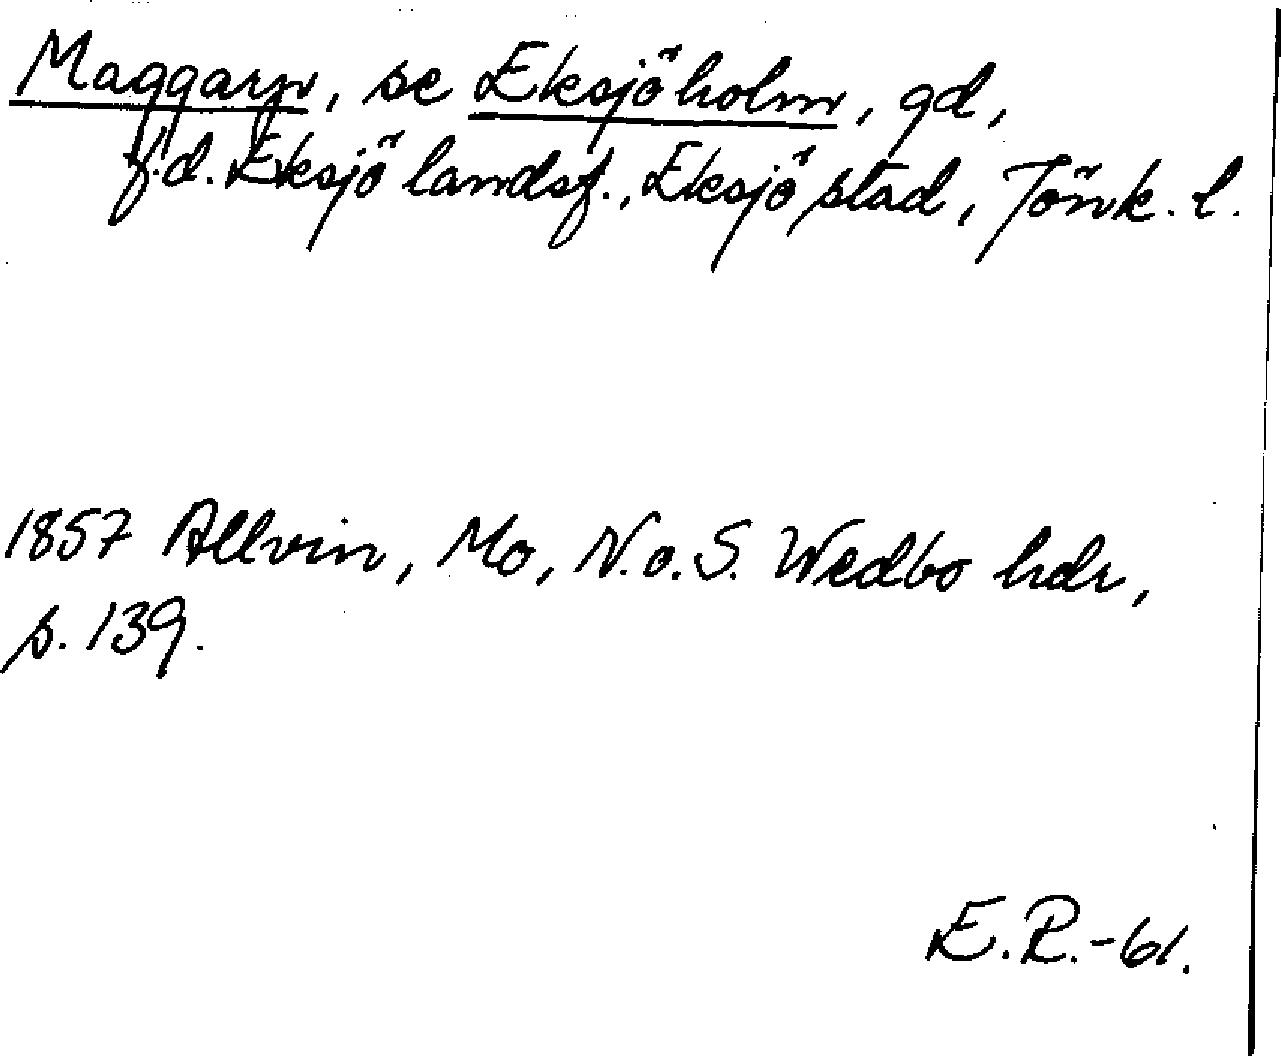 Maggarp, se Eksjöholm, gd,
f.d. Eksjö landsf., Eksjö stad, Jönk. l.
1857 Allvin, Mo, N. o. S. Wedbo hdr,
s. 139.
E.R.-61.